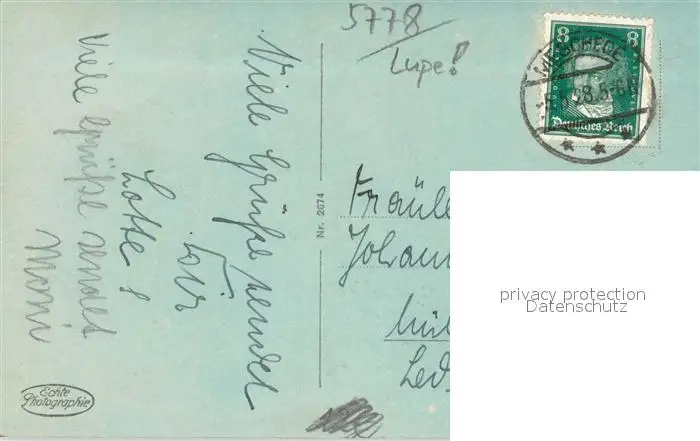 5778
Lupe!
8 8
MESCHEDE
Deutsches Reich
Viele Grüße sendet
Dir
Lotte!
Viele Grüße sendet
Moni
Nr. 2674
Fräule
Johan
Ech­te
Photographie
privacy protection
Datenschutz